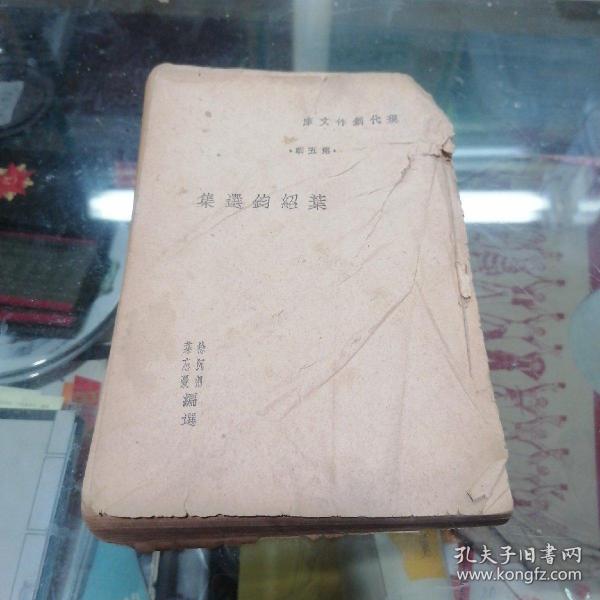 現代創作文庫
·第五輯·
葉紹鈞選集
徐沉泗
葉忘憂
編選
孔夫子旧书网
www.kongfz.com